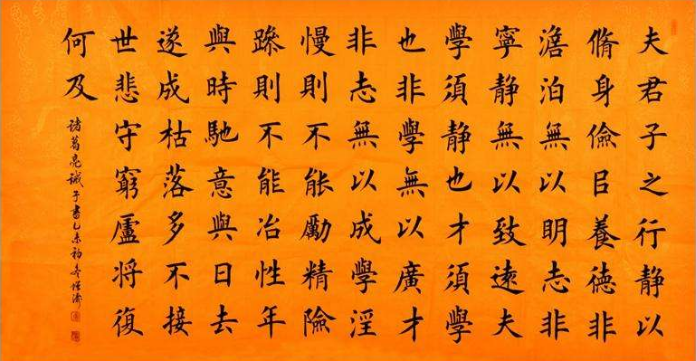 夫君子之行静以
脩身儉㠯養德非
澹泊無以明志非
寧静無以致遠夫
學須静也才須學
也非學無以廣才
非志無以成學淫
慢則不能勵精險
躁則不能冶性年
與時馳意與日去
遂成枯落多不接
世悲守窮廬将復
何及
诸葛亮诫子書乙未初冬增濤